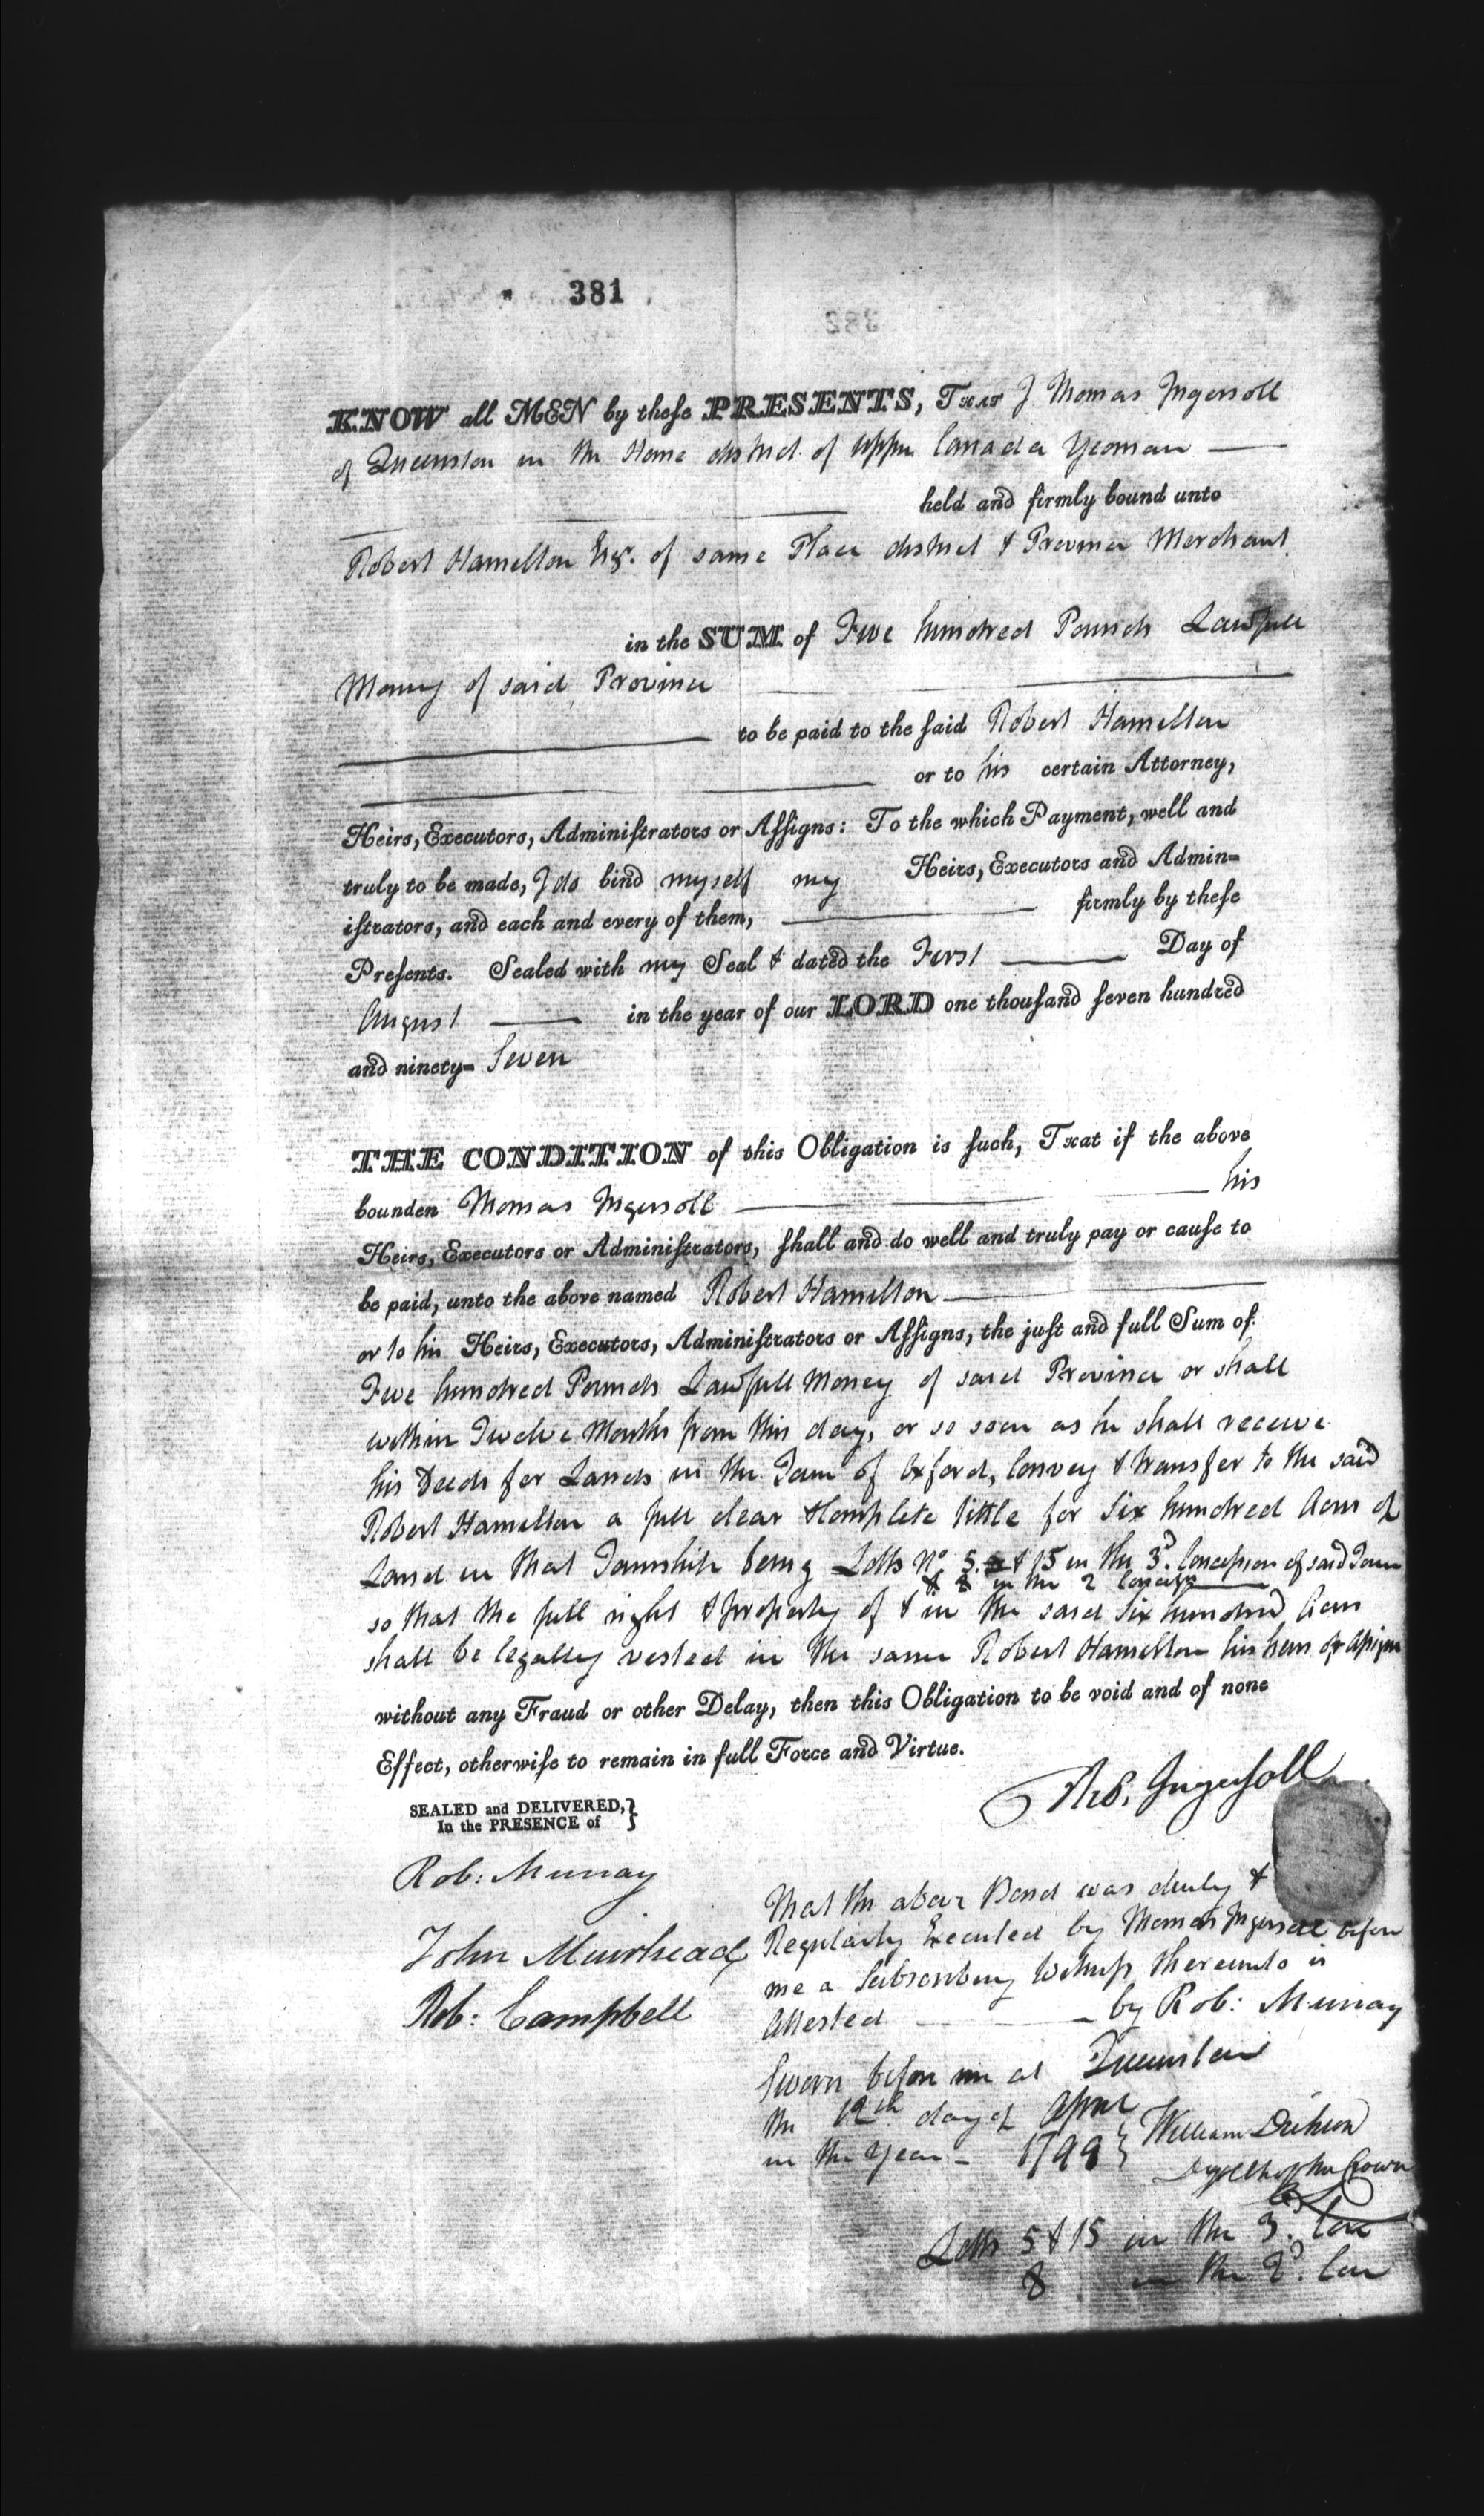 381
382
KNOW all MEN by theſe PRESENTS, That I Thomas Ingersoll
of Queenston in the Home district of Upper Canada Yeoman
held and firmly bound unto
Robert Hamelton Esqr. of same Place district & Province Merchant
in the SUM of Five hundred Pounds Lawfull
Money of said Province
to be paid to the ſaid Robert Hamelton
or to his certain Attorney,
Heirs, Executors, Adminiſtrators or Aſſigns: To the which Payment, well and
truly to be made, I do bind myself my Heirs, Executors and Admin=
iſtrators, and each and every of them, firmly by theſe
Preſents. Sealed with my Seal & dated the First Day of
August in the year of our LORD one thouſand ſeven hundred
and ninety= Seven
THE CONDITION of this Obligation is ſuch, That if the above
bounden Thomas Ingersoll his
Heirs, Executors or Adminiſtrators, ſhall and do well and truly pay or cauſe to
be paid, unto the above named Robert Hamelton
or to his Heirs, Executors, Adminiſtrators or Aſſigns, the juſt and full Sum of
Five hundred Pounds Lawfull Money of said Province or shall
within Twelve Months from this day, or so soon as he shall receive
his Deeds for Lands in the Town of Oxford, Convey & transfer to the said
Robert Hamelton a full clear & Complete tittle for Six hundred Acres of
Land in that Township being Lotts No. 5. & 15 in the 3d. Concession of said Town
& 8 in the 2 Concession
so that the full right & property of & in the said Six hundred Acres
shall be legally vested in the same Robert Hamelton his heirs or Assigns
without any Fraud or other Delay, then this Obligation to be void and of none
Effect, otherwiſe to remain in full Force and Virtue.
Thos. Ingersoll
SEALED and DELIVERED,}
In the PRESENCE of
Rob: Murray
John Muirhead
Rob: Campbell
That the above Bond was duly &
Regularly Executed by Thomas Ingersoll before
me a Subscribing Witness thereunto is
Attested by Rob: Murray
Sworn before me at Queenston
the 12th day of April
in the Year 1798 } William Dickson
Crown
Lotts 5 & 15 in the 3d. Con
8 in the 2d. Con